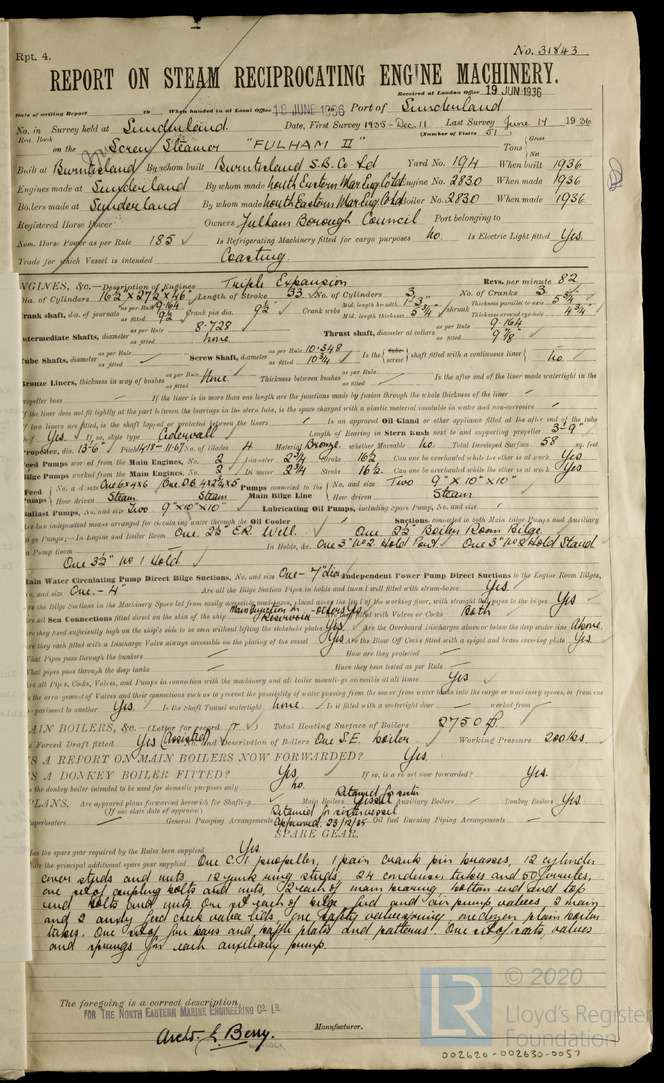 Rpt. 4.
No. 31843
REPORT ON STEAM RECIPROCATING ENGINE MACHINERY.
Received at London Office 19 JUN 1936
Date of writing Report 19 When handed in at Local Office 18 JUNE 1936 Port of Sunderland
No. in Survey held at Sunderland. Date, First Survey 1935-Dec. 11 Last Survey June 14 1936
Reg. Book (Number of Visits 51)
on the Screw Steamer "FULHAM II" Tons Gross Net
Built at Burntisland By whom built Burntisland S.B. Co Ld Yard No. 194 When built 1936
Engines made at Sunderland By whom made North Eastern Mar Eng Co Ltd Engine No. 2830 When made 1936
Boilers made at Sunderland By whom made North Eastern Mar Eng Co Ltd Boiler No. 2830 When made 1936
Registered Horse Power Owners Fulham Borough Council Port belonging to
Nom. Horse Power as per Rule 185 Is Refrigerating Machinery fitted for cargo purposes No. Is Electric Light fitted Yes.
Trade for which Vessel is intended Coasting.
ENGINES, &c.—Description of Engines Triple Expansion Revs. per minute 82
Dia. of Cylinders 16½ x 27½ x 46 Length of Stroke 33 No. of Cylinders 3 No. of Cranks 3
Crank shaft, dia. of journals as per Rule 9.164 as fitted 9½ Crank pin dia. 9½ Crank webs Mid. length breadth 1'-3" Mid. length thickness 5¾" shrunk Thickness parallel to axis 5¾" Thickness around eye-hole 4¾"
Intermediate Shafts, diameter as per Rule 8.728 as fitted none Thrust shaft, diameter at collars as per Rule 9.164 as fitted 9⅞
Tube Shafts, diameter as per Rule as fitted Screw Shaft, diameter as per Rule 10.348 as fitted 10¾ Is the tube screw shaft fitted with a continuous liner No.
Bronze Liners, thickness in way of bushes as per Rule as fitted None Thickness between bushes as per Rule as fitted Is the after end of the liner made watertight in the
propeller boss If the liner is in more than one length are the junctions made by fusion through the whole thickness of the liner
If the liner does not fit tightly at the part between the bearings in the stern tube, is the space charged with a plastic material insoluble in water and non-corrosive
If two liners are fitted, is the shaft lapped or protected between the liners Is an approved Oil Gland or other appliance fitted at the after end of the tube
shaft Yes. If so, state type Cedervall Length of Bearing in Stern Bush next to and supporting propeller 3'-9"
Propeller, dia. 13'-6" Pitch No. of Blades 4 Material Bronze. whether Moveable No. Total Developed Surface 58 sq. feet
Feed Pumps worked from the Main Engines, No. 2 Diameter 2¾ Stroke 16½ Can one be overhauled while the other is at work Yes
Bilge Pumps worked from the Main Engines, No. 2 Diameter 2¾ Stroke 16½. Can one be overhauled while the other is at work Yes
Feed Pumps No. and size One 6x4x6 One D.B. Pumps connected to the Main Bilge Line No. and size Two 9" x 10" x 10"
How driven Steam Steam How driven Steam
Ballast Pumps, No. and size Two 9" x 10" x 10" Lubricating Oil Pumps, including Spare Pump, No. and size
Are two independent means arranged for circulating water through the Oil Cooler Suctions, connected to both Main Bilge Pumps and Auxiliary
Bilge Pumps;—In Engine and Boiler Room One. 2½" E.R. Well. One 2½" Boiler Room Bilge
In Pump Room In Holds, &c. One 3" No 2. Hold Port. One 3" No 2 Hold Starbd
One 3½" No 1 Hold
Main Water Circulating Pump Direct Bilge Suctions, No. and size One - 7" dia Independent Power Pump Direct Suctions to the Engine Room Bilges,
No. and size One. - 4" Are all the Bilge Suction Pipes in holds and tunnel well fitted with strum-boxes Yes.
Are the Bilge Suctions in the Machinery Space led from easily accessible mud-boxes, placed above the level of the working floor, with straight tail pipes to the bilges Yes
Are all Sea Connections fitted direct on the skin of the ship fitted with Valves or Cocks Both
Are they fixed sufficiently high on the ship's side to be seen without lifting the stokehold plates Yes Are the Overboard Discharges above or below the deep water line Above
Are they each fitted with a Discharge Valve always accessible on the plating of the vessel Yes Are the Blow Off Cocks fitted with a spigot and brass covering plate Yes
What Pipes pass through the bunkers How are they protected
What pipes pass through the deep tanks Have they been tested as per Rule
Are all Pipes, Cocks, Valves, and Pumps in connection with the machinery and all boiler mountings accessible at all times Yes
Is the arrangement of Valves and their connections such as to prevent the possibility of water passing from the sea or from water tanks into the cargo or machinery spaces, or from one
compartment to another Yes. Is the Shaft Tunnel watertight None Is it fitted with a watertight door worked from
MAIN BOILERS, &c.—(Letter for record ) Total Heating Surface of Boilers 2750 ft
Is Forced Draft fitted Yes (Assisted) No. and Description of Boilers One S.E. boiler. Working Pressure 200 lbs.
IS A REPORT ON MAIN BOILERS NOW FORWARDED? Yes.
IS A DONKEY BOILER FITTED? Yes If so, is a report now forwarded? Yes.
Is the donkey boiler intended to be used for domestic purposes only No.
PLANS. Are approved plans forwarded herewith for Shafting Main Boilers Retained for sister vessel Auxiliary Boilers Donkey Boilers Yes.
(If not state date of approval)
Superheaters General Pumping Arrangements Retained for sister vessel Approved. 23/12/35 Oil fuel Burning Piping Arrangements
SPARE GEAR.
Has the spare gear required by the Rules been supplied Yes.
State the principal additional spare gear supplied One C.I. propeller, 1 pair crank pin brasses, 12 cylinder
cover studs and nuts, 12 junk ring studs, 24 condenser tubes and 50 ferrules,
one set of coupling bolts and nuts, 2 each of main bearing, bottom end and top
end bolts and nuts. One set each of bilge, feed and air pump valves, 2 main
and 2 donkey feed check valve lids, one safety valve spring, one dozen plain boiler
tubes. One set of fire bars and baffle plates and patterns. One set of seats, valves
and springs for each auxiliary pump.
The foregoing is a correct description,
FOR THE NORTH EASTERN MARINE ENGINEERING CO. LD.
Archd. L. Berry. Manufacturer.
LR © 2020
Lloyd's Register
Foundation
002620-002630-0057